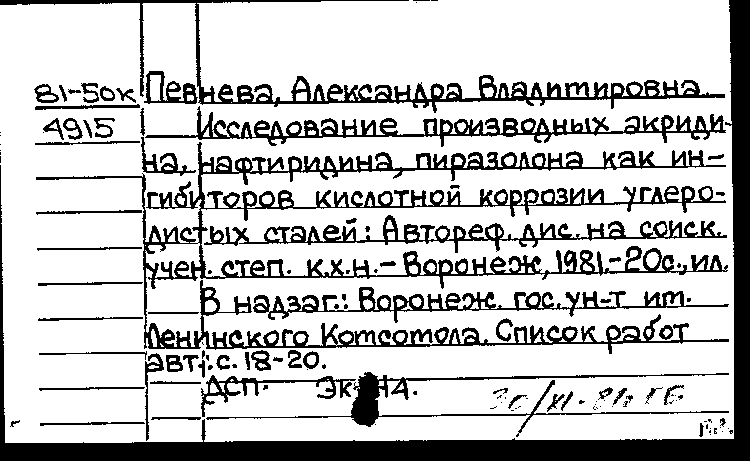 81-50к Певнева, Александра Владимировна.
4915 Исследование производных акриди-
на, нафтиридина, пиразолона как ин-
гибиторов кислотной коррозии углеро-
дистых сталей: Автореф. дис. на соиск.
учен. степ. к.х.н. - Воронеж, 1981. - 20с., ил.
В надзаг.: Воронеж. гос. ун-т им.
Ленинского Комсомола. Список работ
авт.: с. 18-20.
ДСП. Эк